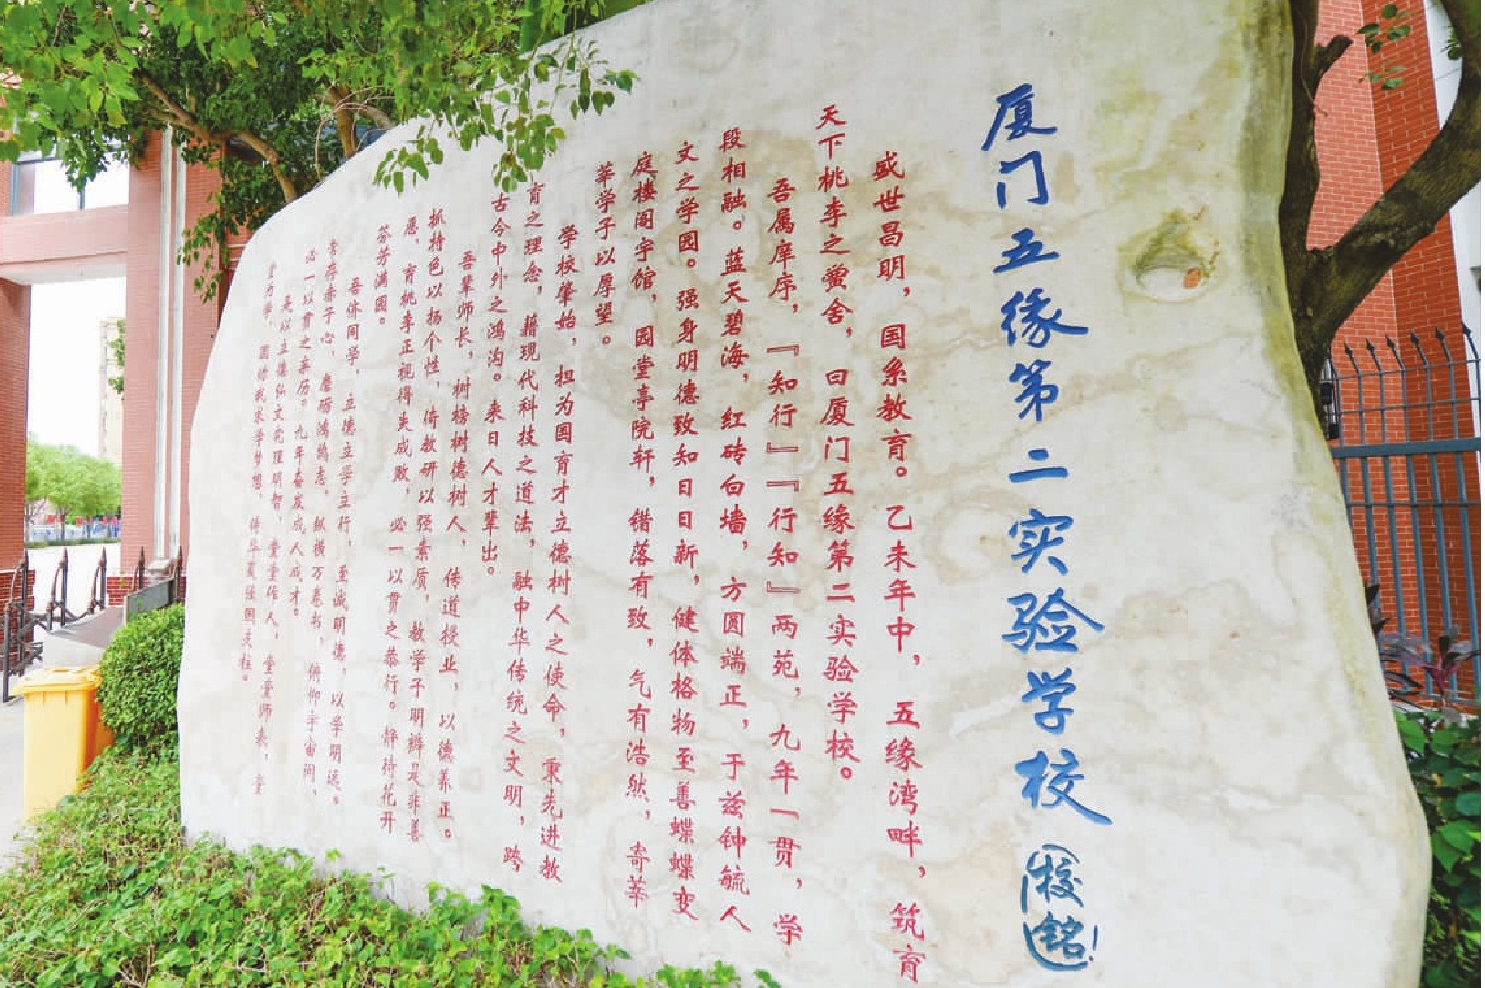 厦门五缘第二实验学校（校铭）
盛世昌明，国系教育。乙未年中，五缘湾畔，筑育
天下桃李之黉舍，曰厦门五缘第二实验学校。
吾属庠序，『知行』『行知』两苑，九年一贯，学
段相融。蓝天碧海，红砖白墙，方圆端正，于兹钟毓人
文之学园。强身明德致知日日新，健体格物至善蝶蝶变
庭楼阁宇馆，园堂亭院轩，错落有致，气有浩然，寄莘
莘学子以厚望。
学校肇始，担为国育才立德树人之使命，秉先进教
育之理念，藉现代科技之道法，融中华传统之文明，跨
古今中外之鸿沟。来日人才辈出。
吾辈师长，树榜树德树人，传道授业，以德养正。
抓特色以扬个性，倚教研以强素质，教学子明辨是非善
恶，育桃李正视得失成败，必一以贯之恭行。静待花开
芬芳满园。
吾侪同学，立德立学立行，至诚明德，以学明远。
常存赤子心，磨砺鸿鹄志，纵横万卷书，俯仰宇宙间，
必一以贯之亲历。九年奋发成人成才。
是以立德弘文究理明智，堂堂作人，堂堂师表，堂
堂力学，圆你我家学梦想，铸华夏强国支柱。